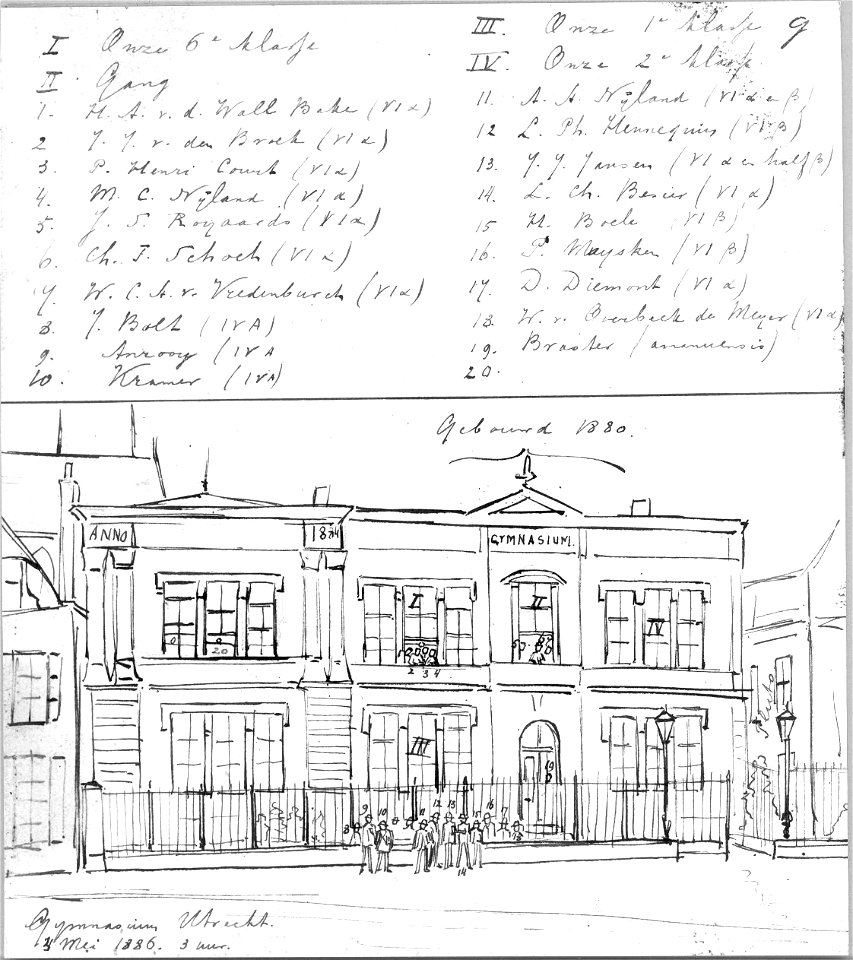 I Onze 6e klasse
II Gang
1. H. A. v. d. Wall Bake (VI α)
2 J. J. v. den Broek (VI α)
3. P. Henri Court (VI α)
4. M. C. Nijland (VI α)
5. J. S. Royaards (VI α)
6. Ch. F. Schoch (VI α)
7. W. C. A. v. Vredenburch (VI α)
8. J. Bolt (IV A)
9. Anrooy (IV A
10. Kramer (IV A)
III. Onze 1e klasse 9
IV. Onze 2e klasse.
11. A. A. Nijland (VI α en β)
12 L. Ph. Hennequin (VI β)
13. J. J. Jansen (VI α en half β)
14. L. Ch. Besier (VI α)
15 H. Boele (VI β)
16. P. Muysken (VI β)
17. D. Diemont (VI α)
18. W. v. Overbeek de Meyer (VI α)
19. Braster (amanuensis)
20.
Gebouwd 1880.
ANNO 1874 GYMNASIUM.
I II IV
5
20
2 3 4
III
19
8 9 10 11 12 13 15 16 17 18
14
Gymnasium Utrecht.
Mei 1886. 3 uur.